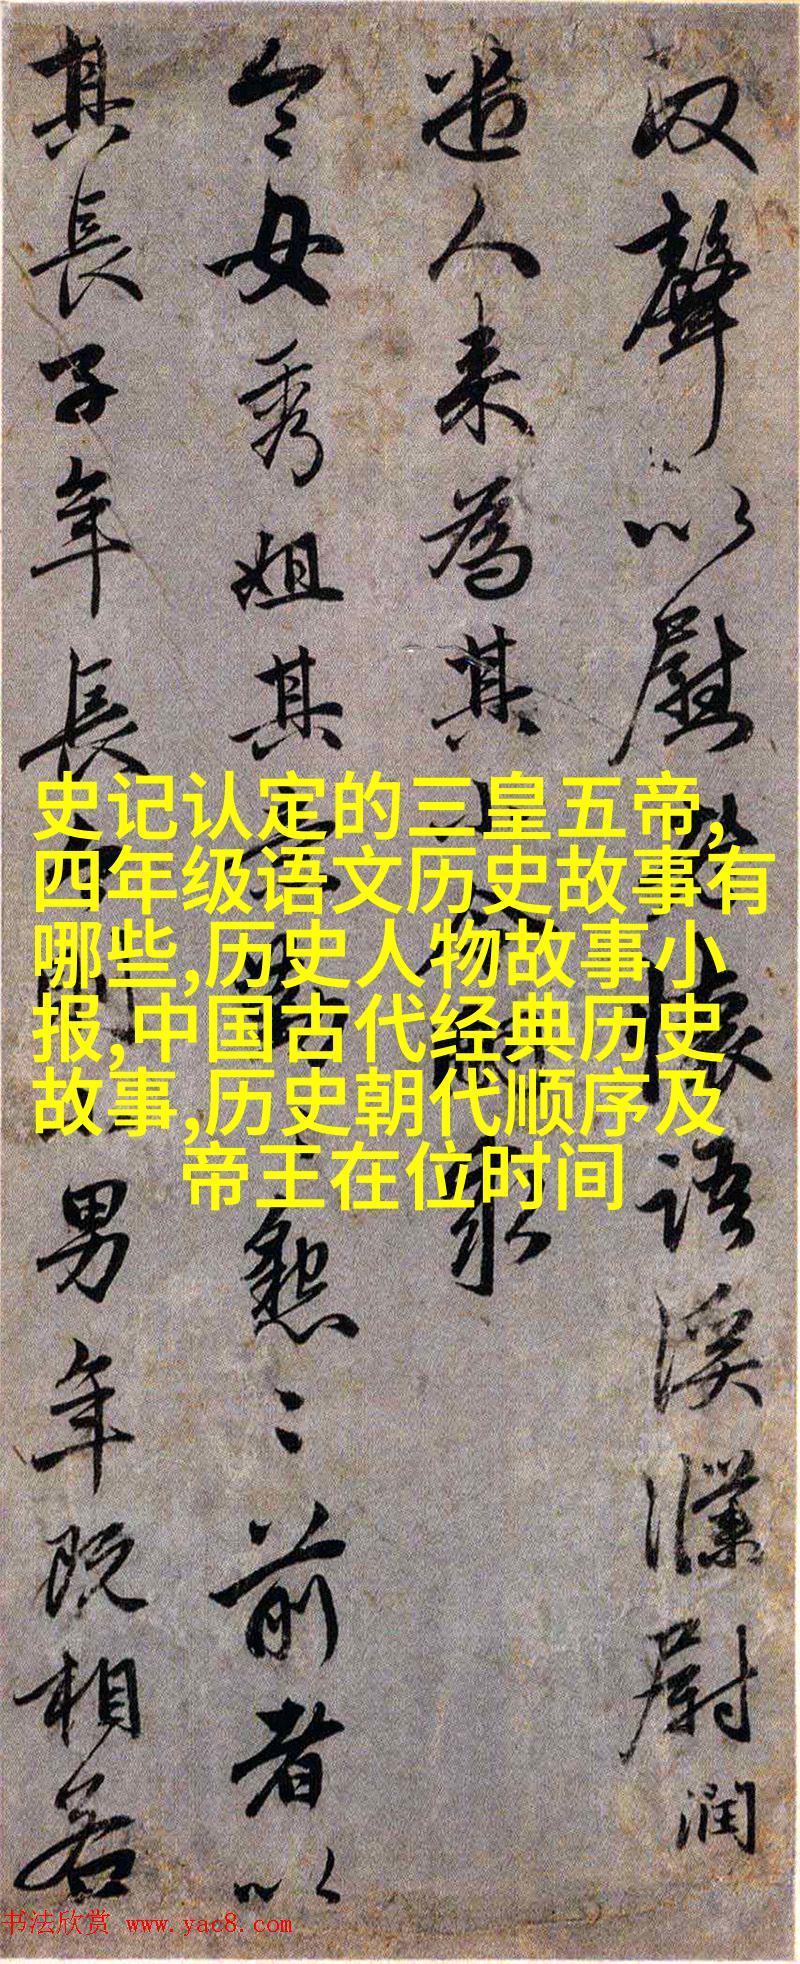 汉聲以慰
懷语溪濮尉润
遣人来為其
令母秀姐其
懃〻前者以
其長子年長
男年既相若
史记认定的三皇五帝,
四年级语文历史故事有
哪些,历史人物故事小
报,中国古代经典历史
故事,历史朝代顺序及
帝王在位时间
书法欣赏 www.yac8.com